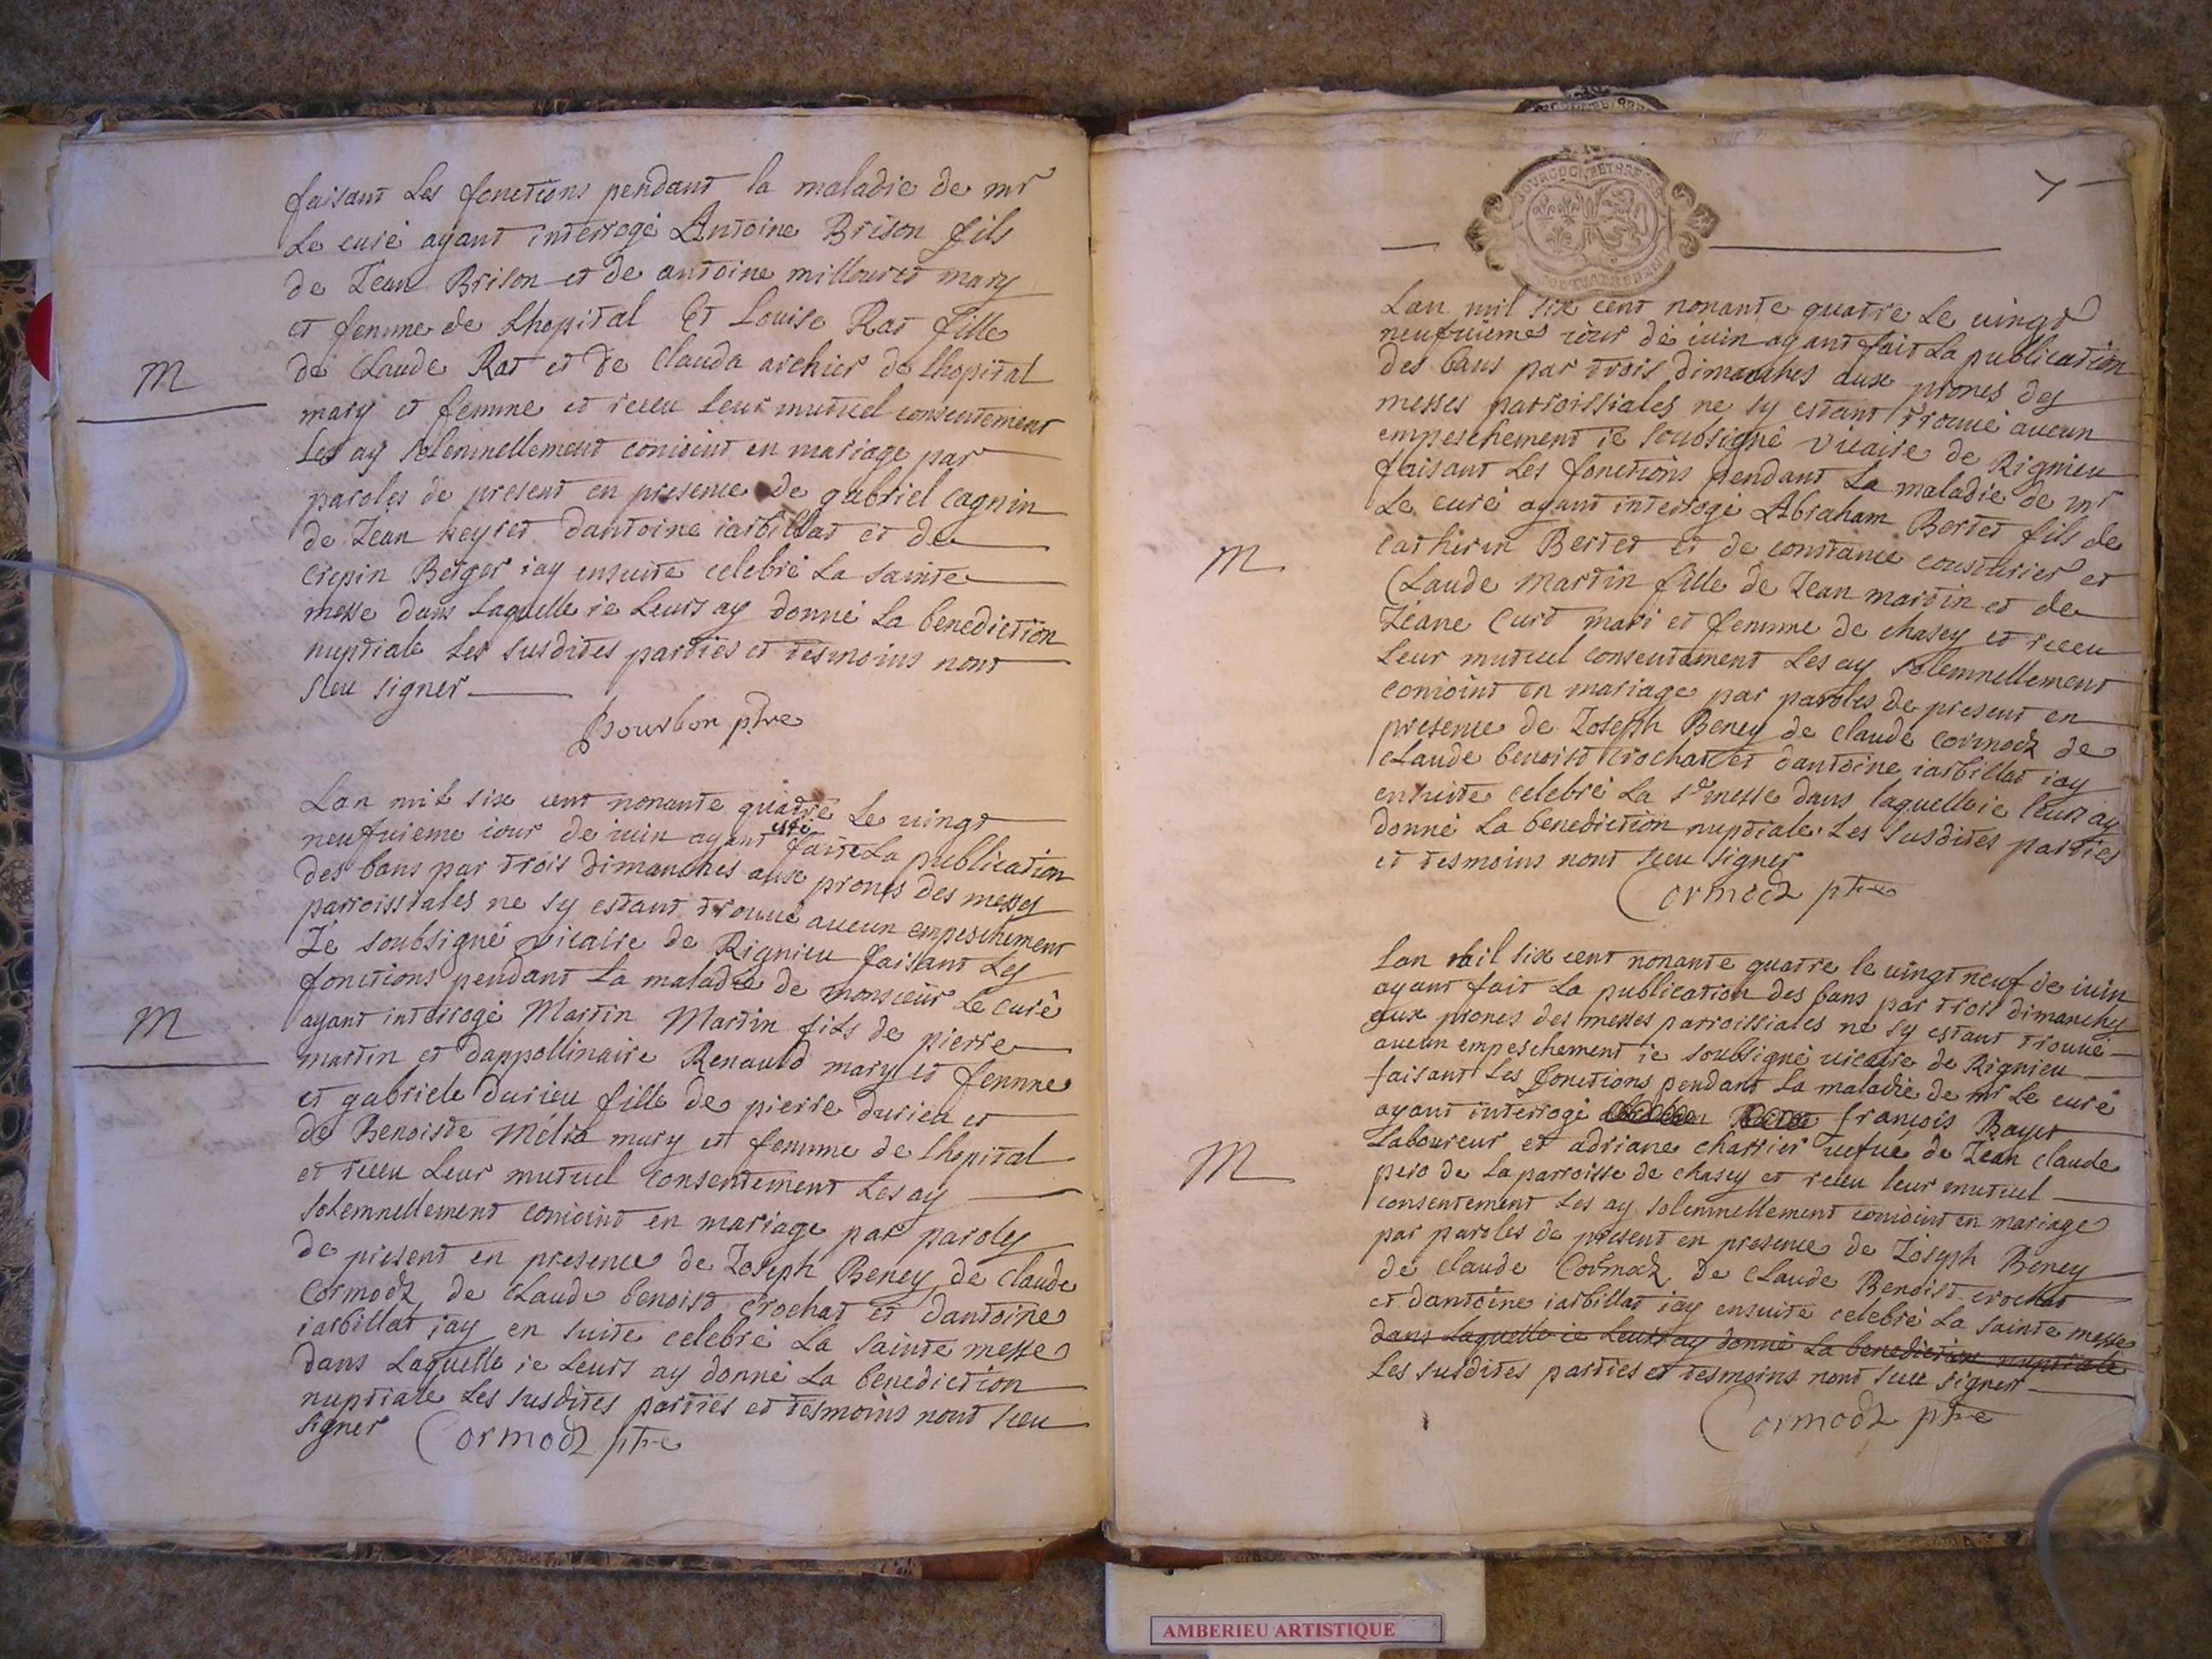 faisant les fonctions pendant la maladie de mr
Le curé ayant interrogé Antoine Brison fils
de Jean Brison et de antoine millouret mary
et femme de Lhopital Et Louise Rat fille
M
de Claude Rat et de Clauda archier de Lhopital
mary et femme et receu leur mutuel consentement
Les ay solemnellement conioint en mariage par
paroles de present en presence de gabriel Cagnin
de Jean neyret dantoine iarbillat et de
Crepin Berger iay ensuite celebré La sainte
messe dans Laquelle ie Leurs ay donné La benediction
nuptiale Les susdites parties et tesmoins nont
sceu signer
Bourbon ptre
Lan mil six cent nonante quatre Le vingt
neufuieme iour de iuin ayant esté faite La publication
des bans par trois dimanches aux prones des messes
parroissiales ne sy estant trouué aucun empeschement
Je soubsigné vicaire de Rignieu faisant Les
fonctions pendant La maladie de monsieur Le curé
M
ayant interrogé Martin Martin fils de pierre
martin et dappollinaire Renauld mary et femme
et gabriele Durieu fille de pierre durieu et
de Benoiste Mélia mary et femme de Lhopital
et receu Leur mutuel consentement Les ay
solemnellement conioint en mariage par paroles
de present en presence de Joseph Beney de Claude
Cormodz de CLaude benoist Crochat et dantoine
iarbillat iay en suite celebré La sainte messe
dans Laquelle ie Leurs ay donné La benediction
nuptiale Les susdites parties et tesmoins nont sceu
signer Cormodz ptre
7
Lan mil six cent nonante quatre Le vingt
neufuieme iour de iuin ayant fait La publication
des bans par trois dimanches aux prones des
messes parroissiales ne sy estant trouué aucun
empeschement ie soubsigné vicaire de Rignieu
faisant Les fonctions pendant La maladie de mr
Le curé ayant interrogé Abraham Bertet fils de
M
Catherin Bertet et de constance cousturier et
CLaude martin fille de Jean martin et de
Jéane Curt mari et femme de chasey et receu
Leur mutuel consentement Les ay solemnellement
conioint en mariage par paroles de present en
presence de Joseph Beney de claude cormodz de
cLaude benoist Crochat et dantoine iarbillat iay
ensuite celebré La ste messe dans laquelle ie leurs ay
donné La benediction nuptiale Les susdites parties
et tesmoins nont sceu signer
Cormodz ptre
Lan mil six cent nonante quatre le vingt neuf de iuin
ayant fait La publication des bans par trois dimanches
aux prones des messes parroissiales ne sy estant trouué
aucun empeschement ie soubsigné vicaire de Rignieu
faisant Les fonctions pendant La maladie de mr Le curé
ayant interrogé françois Bayet
M
Laboureur et adriane chartier vefue de Jean claude
pero de La parroisse de chasey et receu leur mutuel
consentement Les ay solemnellement conioint en mariage
par paroles de present en presence de Joseph Beney
de claude Cormodz de cLaude Benoist crochat
et dantoine iarbillat iay ensuite celebré La sainte messe
dans Laquelle ie Leurs ay donné La benediction nuptiale
Les susdites parties et tesmoins nont sceu signer
Cormodz ptre
AMBERIEU ARTISTIQUE